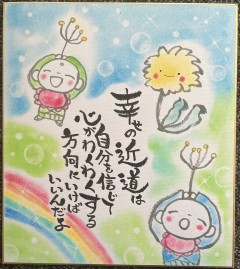 幸せの近道は
自分を信じて
心がわくわくする
方向にいけば
いいんだよ